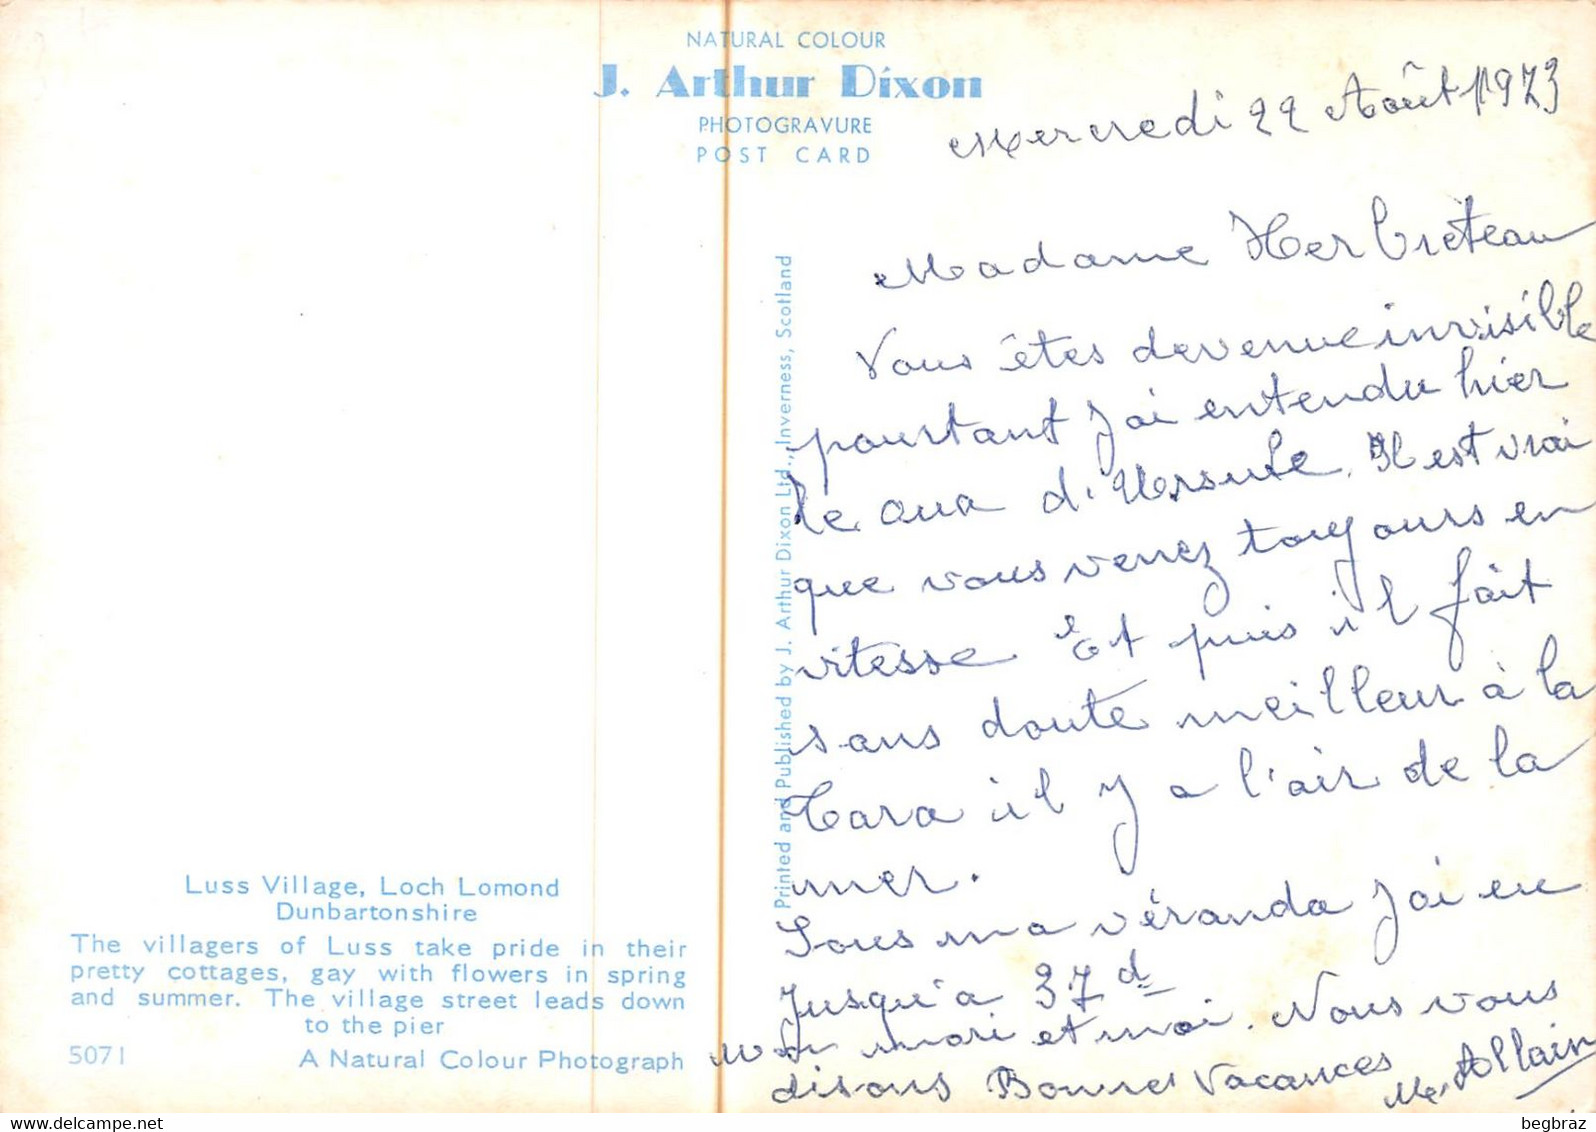 NATURAL COLOUR
J. Arthur Dixon
PHOTOGRAVURE
POST CARD
Mercredi 22 Août 1973
Madame Herbreteau
Vous êtes devenue invisible
pourtant J'ai entendu hier
le oua d'Ursule. Il est vrai
que vous venez toujours en
vitesse Et puis il fait
sans doute meilleur à la
Tara il y a l'air de la
mer.
Sous ma véranda J'ai eu
Jusqu'a 37d
mon mari et moi. Nous vous
disons Bonnes Vacances
Me Allain
Printed and Published by J. Arthur Dixon Ltd., Inverness, Scotland
Luss Village, Loch Lomond
Dunbartonshire
The villagers of Luss take pride in their
pretty cottages, gay with flowers in spring
and summer. The village street leads down
to the pier
5071 A Natural Colour Photograph
begbraz